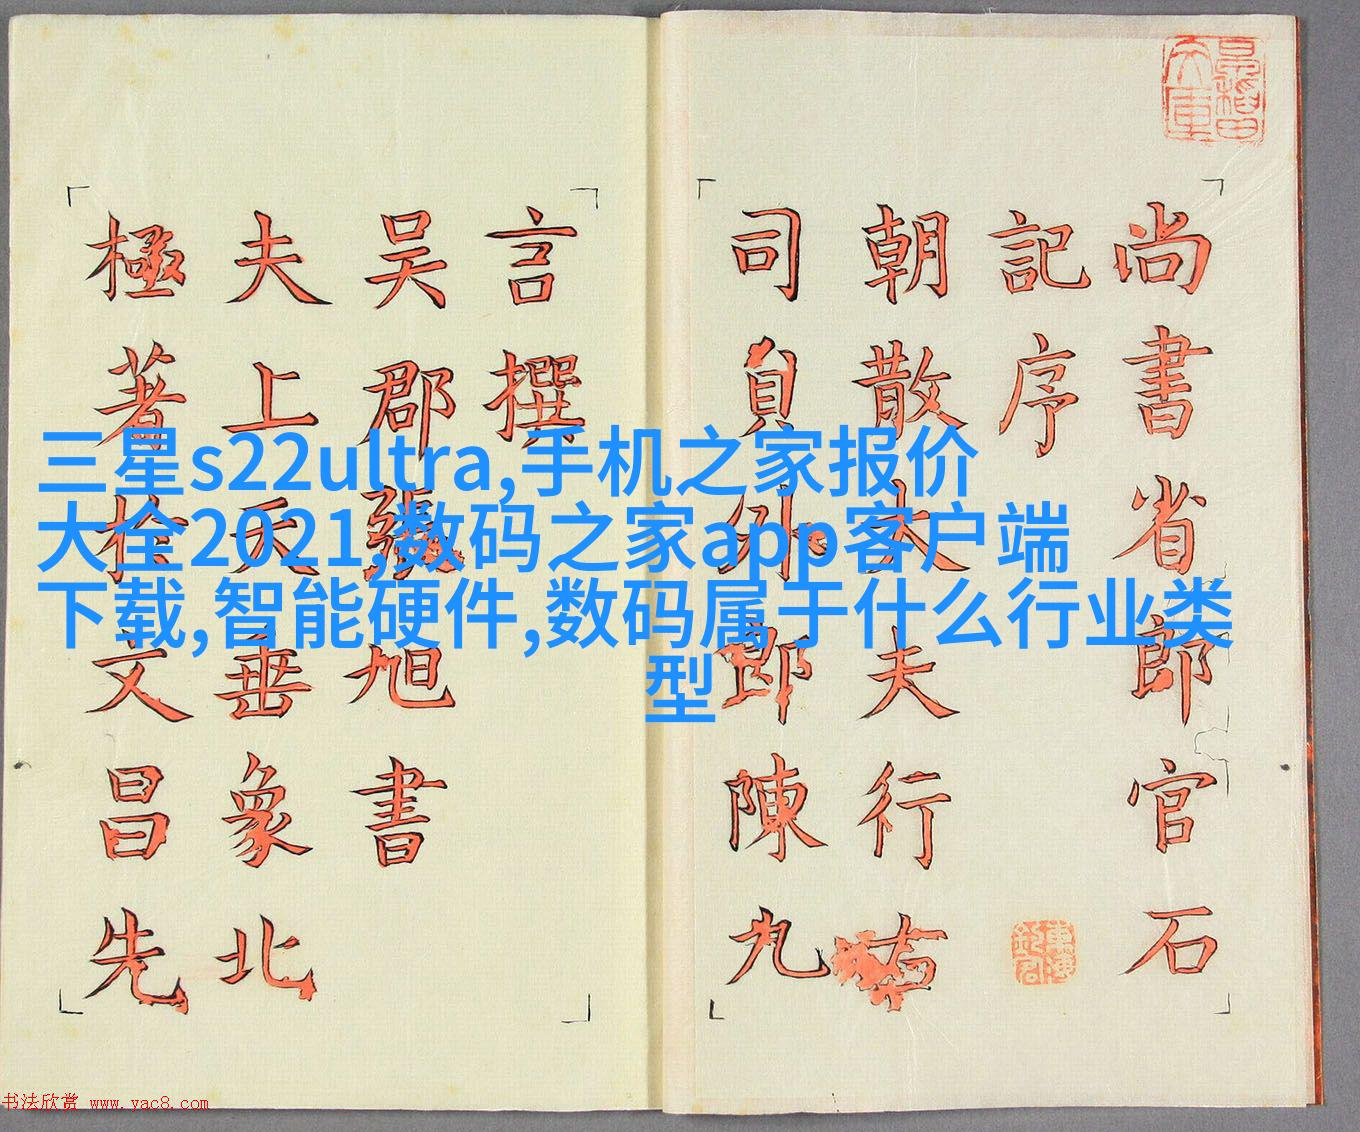 尚書省郎官石
記序
朝散大夫行右
司員外郎陳九
言撰
吴郡張旭書
夫上天垂象北
極著扵文昌先
三星s22ultra,手机之家报价
大全2021,数码之家app客户端
下载,智能硬件,数码属于什么行业类
型
书法欣赏 www.yac8.com